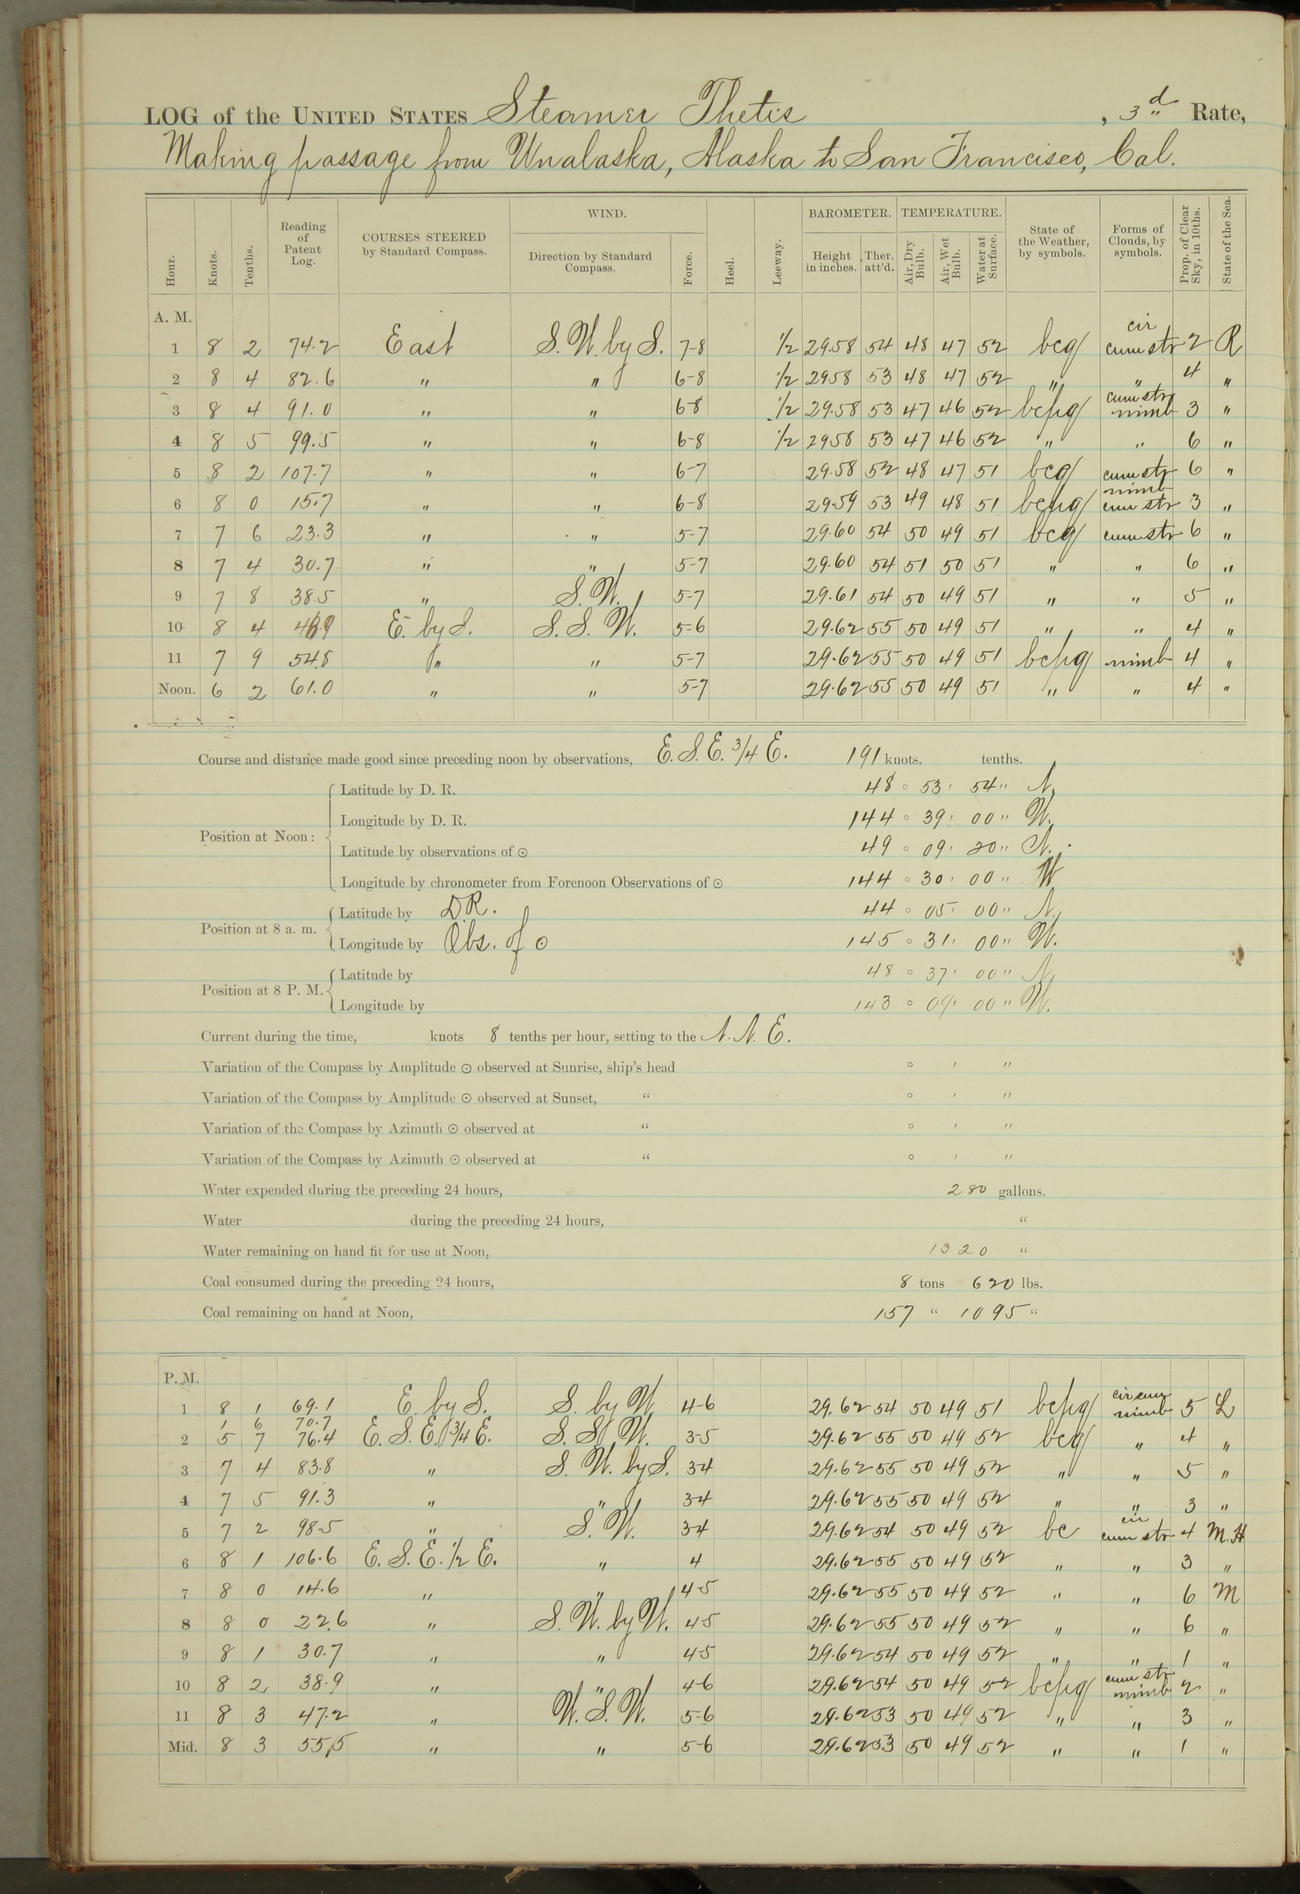 LOG of the UNITED STATES Steamer Thetis , 3d Rate,
Making passage from Unalaska, Alaska to San Francisco, Cal.
Hour. Knots. Tenths. Reading of Patent Log. COURSES STEERED by Standard Compass. WIND. Direction by Standard Compass. Force. Heel. Leeway. BAROMETER. Height in inches. Ther. att'd. TEMPERATURE. Air, Dry Bulb. Air, Wet Bulb. Water at Surface. State of the Weather, by symbols. Forms of Clouds, by symbols. Prop. of Clear Sky, in 10ths. State of the Sea.
A. M.
1 8 2 74.2 East S. W. by S. 7-8 1/2 29.58 54 48 47 52 bcq cir cum str 2 R
2 8 4 82.6 " " 6-8 1/2 2958 53 48 47 52 " " 4 "
3 8 4 91.0 " " 6-8 1/2 29.58 53 47 46 52 bcpq cum str nimb 3 "
4 8 5 99.5 " " 6-8 1/2 2958 53 47 46 52 " " 6 "
5 8 2 107.7 " " 6-7 29.58 52 48 47 51 bcq cum str 6 "
6 8 0 15.7 " " 6-8 29.59 53 49 48 51 nimb cum str 3 "
7 7 6 23.3 " " 5-7 29.60 54 50 49 51 bcq cum str 6 "
8 7 4 30.7 " " 5-7 29.60 54 51 50 51 " " 6 "
9 7 8 38.5 " S. W. 5-7 29.61 54 50 49 51 " " 5 "
10 8 4 E. by S. S. S. W. 5-6 29.62 55 50 49 51 " " 4 "
11 7 9 54.8 " " 5-7 29.62 55 50 49 51 bcpq nimb 4 "
Noon. 6 2 61.0 " " 5-7 29.62 55 50 49 51 " " 4 "
Course and distance made good since preceding noon by observations, E. S. E. 3/4 E. 191 knots. tenths.
Position at Noon:
Latitude by D. R. 48 ° 53 ' 54 " N.
Longitude by D. R. 144 ° 39 ' 00 " W.
Latitude by observations of ⊙ 49 ° 09 ' 20 " N.
Longitude by chronometer from Forenoon Observations of ⊙ 144 ° 30 ' 00 " W
Position at 8 a. m.
Latitude by D.R. 44 ° 05 ' 00 " N.
Longitude by Obs. of ⊙ 145 ° 31 ' 00 " W.
Position at 8 P. M.
Latitude by 48 ° 37 ' 00 " N.
Longitude by 143 ° 09 ' 00 " W.
Current during the time, knots 8 tenths per hour, setting to the N. N. E.
Variation of the Compass by Amplitude ⊙ observed at Sunrise, ship's head ° ' "
Variation of the Compass by Amplitude ⊙ observed at Sunset, " ° ' "
Variation of the Compass by Azimuth ⊙ observed at " ° ' "
Variation of the Compass by Azimuth ⊙ observed at " ° ' "
Water expended during the preceding 24 hours, 280 gallons.
Water during the preceding 24 hours, "
Water remaining on hand fit for use at Noon, 1320 "
Coal consumed during the preceding 24 hours, 8 tons 620 lbs.
Coal remaining on hand at Noon, 157 " 1095 "
P. M.
1 8 1 69.1 E. by S. S. by W. 4-6 29.62 54 50 49 51 bcpq cir cum nimb 5 L
1 6 70.7
2 5 7 76.4 E. S. E. 3/4 E. S. S. W. 3-5 29.62 55 50 49 52 bcq " 4 "
3 7 4 83.8 " S. W. by S. 3-4 29.62 55 50 49 52 " " 5 "
4 7 5 91.3 " " 3-4 29.62 55 50 49 52 " " 3 "
5 7 2 98.5 " S. W. 3-4 29.62 54 50 49 52 bc cir cum str 4 M.H
6 8 1 106.6 E. S. E. 1/2 E. " 4 29.62 55 50 49 52 " " 3 "
7 8 0 14.6 " " 4-5 29.62 55 50 49 52 " " 6 M
8 8 0 22.6 " S. W. by W. 4-5 29.62 55 50 49 52 " " 6 "
9 8 1 30.7 " " 4-5 29.62 54 50 49 52 " " 1 "
10 8 2 38.9 " " 4-6 29.62 54 50 49 52 bcpq cum str nimb 2 "
11 8 3 47.2 " W. S. W. 5-6 29.62 53 50 49 52 " " 3 "
Mid. 8 3 55.5 " " 5-6 29.62 53 50 49 52 " " 1 "